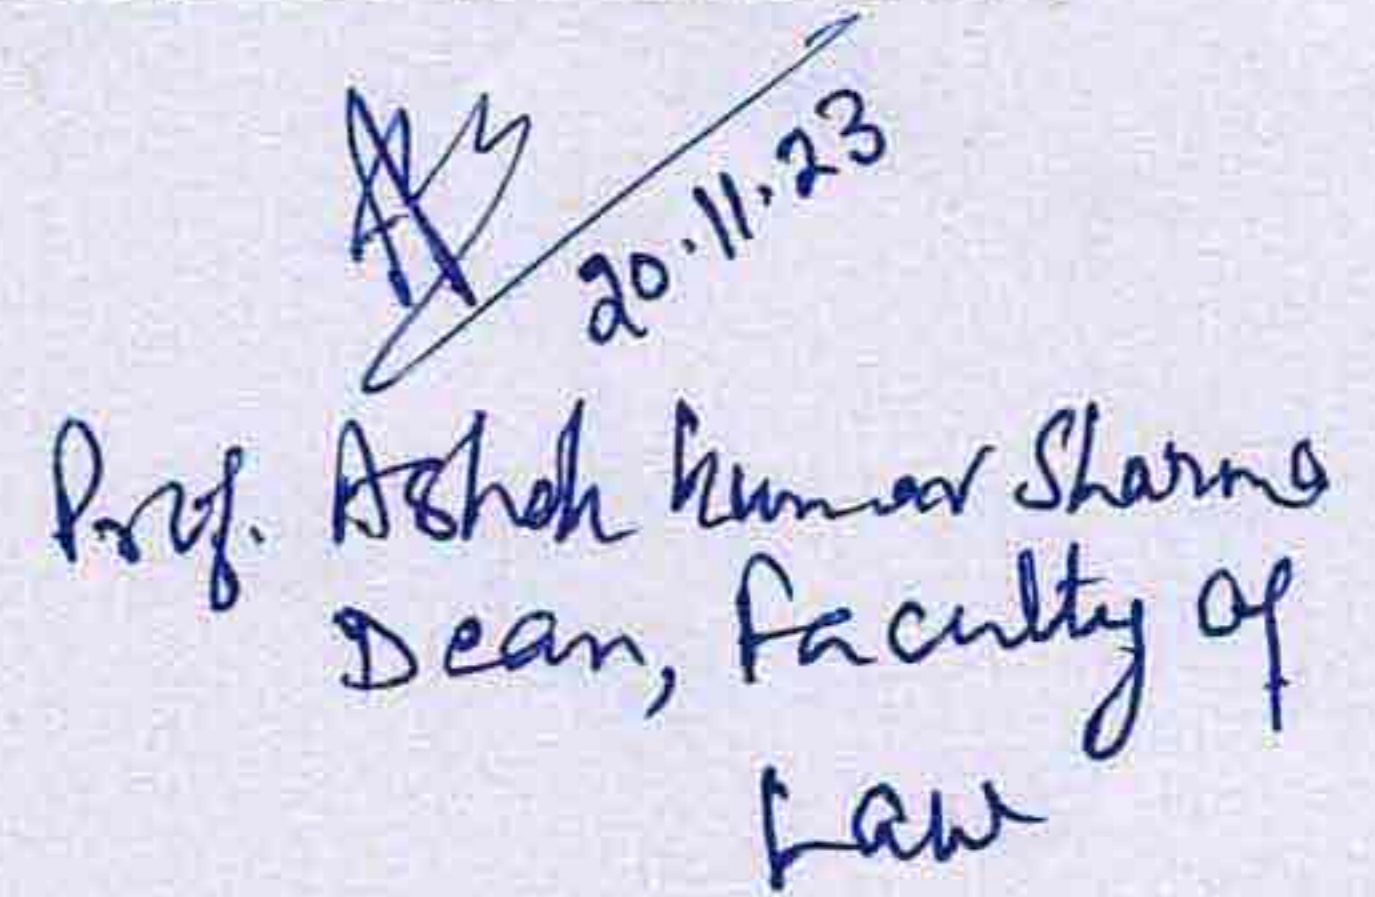 20.11.23
Prof. Ashok Kumar Sharma
Dean, Faculty of
Law